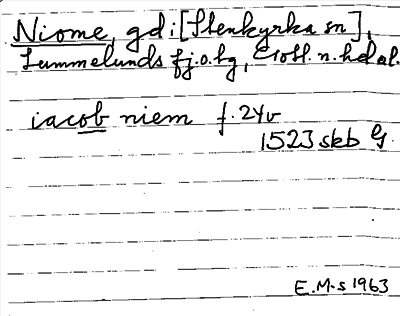 Niome, gd i [Stenkyrka sn],
Lummelunds fj. o. hg, Gotl. n. hd al.
iacob niem f. 24v
1523 skb G.
E.M-s 1963